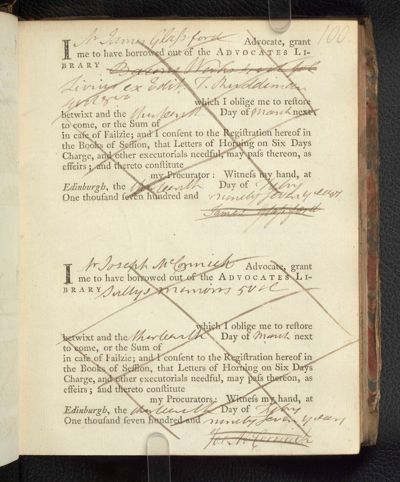 100
I Mr James Glassford Advocate, grant
me to have borrowed out of the ADVOCATES LI-
BRARY
Livius ex Edit. T. Ruddiman
which I oblige me to restore
betwixt and the thirteenth Day of March next
to come, or the Sum of
in case of Failzie; and I consent to the Registration hereof in
the Books of Session, that Letters of Horning on Six Days
Charge, and other executorials needful, may pass thereon, as
effeirs; and thereto constitute
my Procurator: Witness my hand, at
Edinburgh, the thirteenth Day of Febry
One thousand seven hundred and ninety seven years
James Glassford
I Mr Joseph McCormick Advocate, grant
me to have borrowed out of the ADVOCATES LI-
BRARY Sully's memoirs 5 vol
which I oblige me to restore
betwixt and the thirteenth Day of March next
to come, or the Sum of
in case of Failzie; and I consent to the Registration hereof in
the Books of Session, that Letters of Horning on Six Days
Charge, and other executorials needful, may pass thereon, as
effeirs; and thereto constitute
my Procurator: Witness my hand, at
Edinburgh, the thirteenth Day of Febry
One thousand seven hundred and ninety seven years
Jos. McCormick